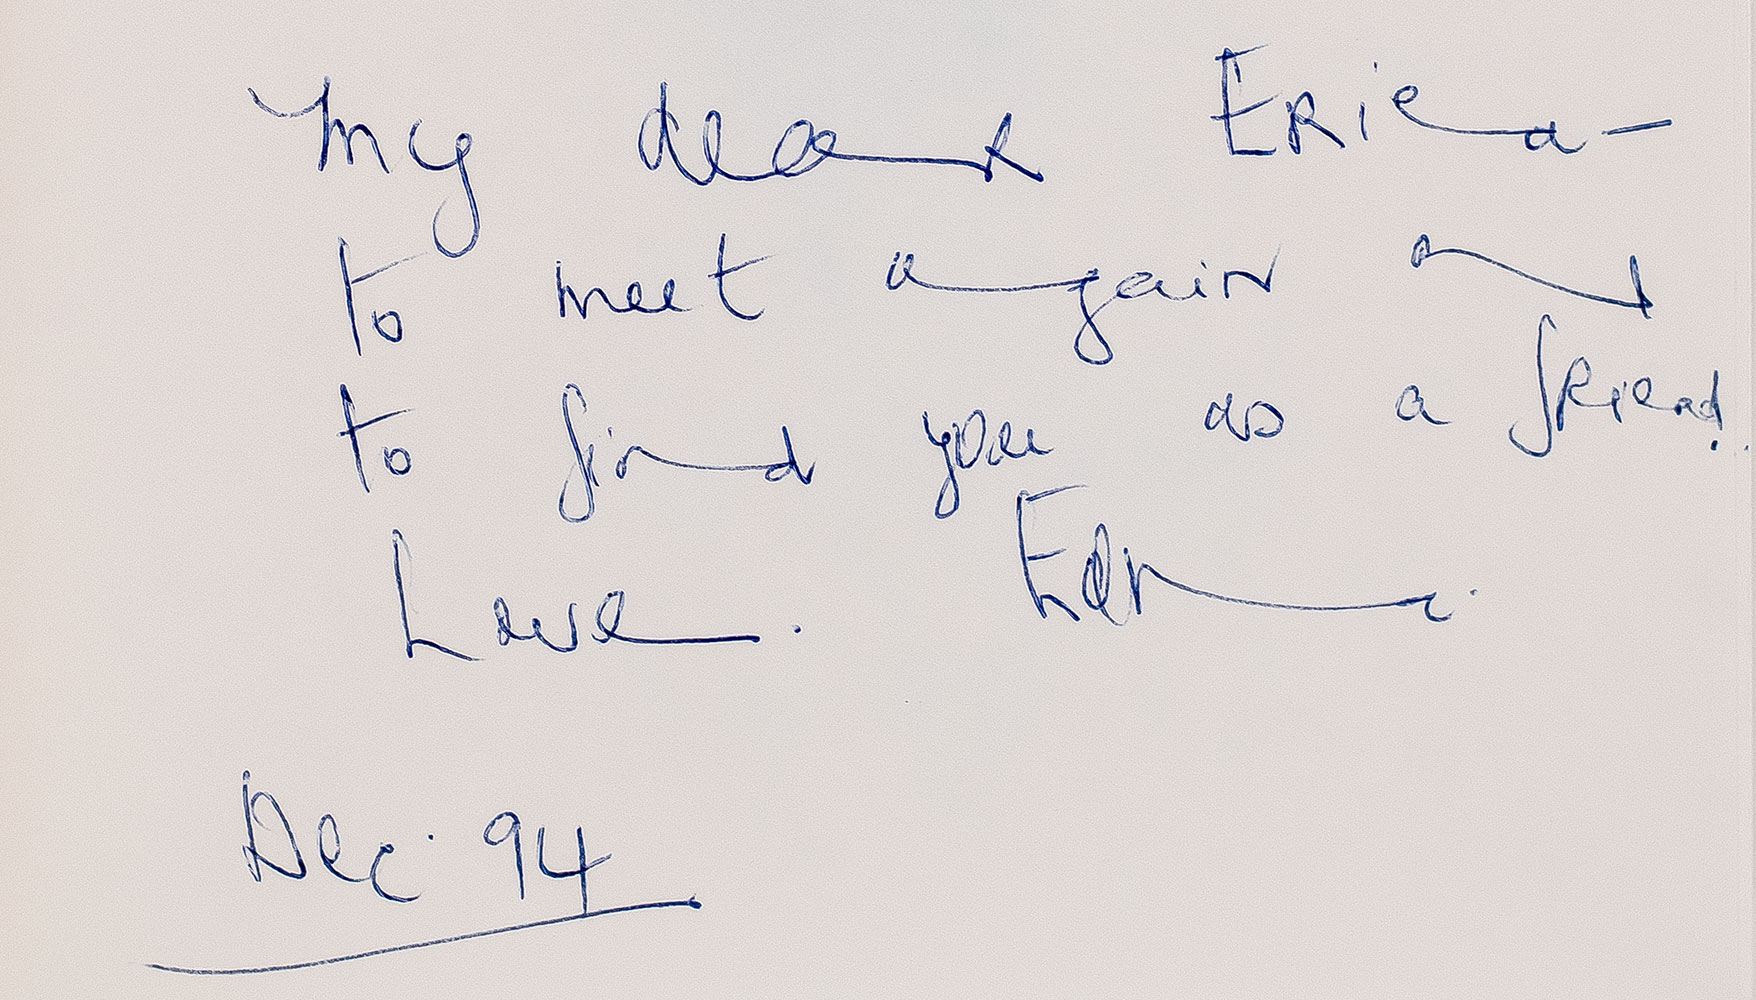 My dear Erica —
to meet again and
to find you as a friend.
Love. Edna.
Dec. 94